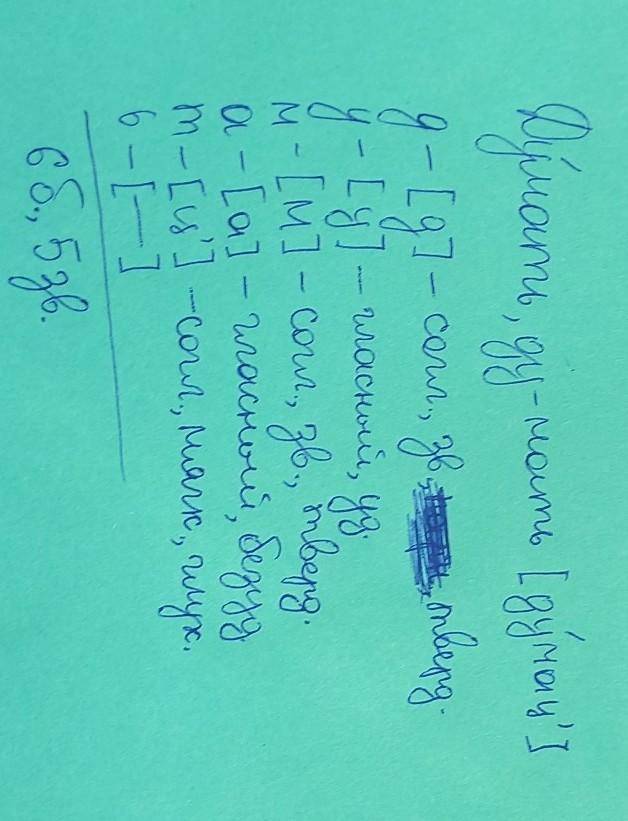 Ду́мать, ду-мать [ду́мац']
д – [д] – согл., зв., тверд.
у – [у] – гласный, уд.
м – [м] – согл., зв., тверд.
а – [а] – гласный, безуд.
т – [ц'] – согл, мягк, глух.
ь – [—]
6б., 5зв.